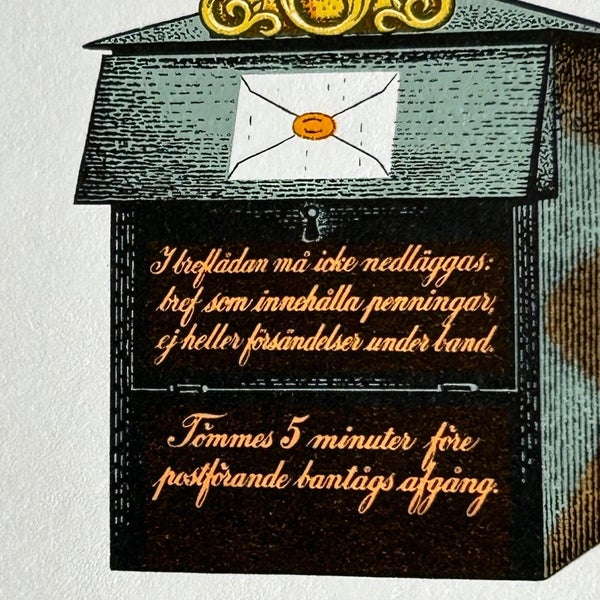 I breflådan må icke nedläggas:
bref som innehålla penningar,
ej heller försändelser under band.
Tömmes 5 minuter före
postförande bantågs afgång.